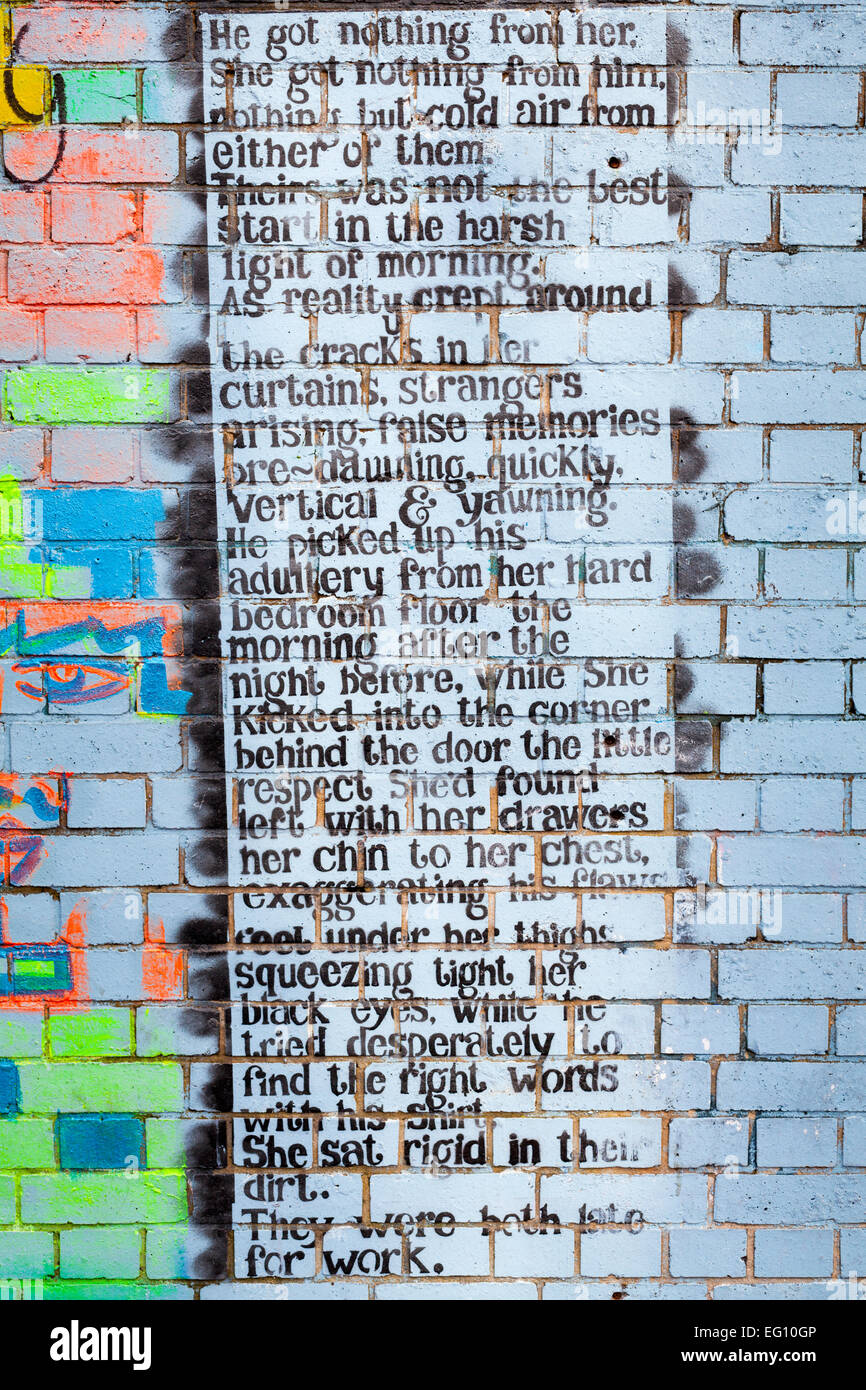 He got nothing from her.
She got nothing from him,
nothing but cold air from
either of them.
Theirs was not the best
start in the harsh
light of morning.
As reality crept around
the cracks in her
curtains, strangers
arising, false memories
pre~dawning, quickly,
vertical & yawning.
He picked up his
adultery from her hard
bedroom floor the
morning after the
night before, while She
Kicked into the corner
behind the door the little
respect She'd found
left with her drawers
her chin to her chest,
exaggerating his flaws
feet under her thighs
squeezing tight her
black eyes, while he
tried desperately to
find the right words
with his shirt.
She sat rigid in their
dirt.
They were both late
for work.
alamy stock photo
a
alamy
Image ID: EG10GP
www.alamy.com